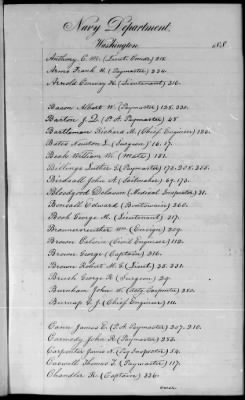 Navy Department,
Washington 188
Anthony C. M. (Lieut. Comdr) 218.
Arms Frank H. (Paymaster) 234.
Arnold Conway H. (Lieutenant) 216.
Bacon Albert W. (Paymaster) 125. 230.
Barton J. Q. (P. A. Paymaster) 48.
Bartleman Richard M. (Chief Engineer) 124.
Bates Newton L. (Surgeon) 16. 17.
Beck William W. (Mate) 181.
Billings Luther G. (Paymaster) 173. 205. 205.
Birdsall John A. (Sailmaker) 67. 173.
Bloodgood Delavan (Medical Inspector) 31.
Bonsall Edward (Boatswain) 260.
Book George M. (Lieutenant) 217.
Braunersreuther Wm (Ensign) 209.
Brown Calvin (Civil Engineer) 112.
Brown George (Captain) 216.
Brown Robert M. G. (Lieut) 25. 231.
Brush George R. (Surgeon) 29.
Burnham John W. (Actg Carpenter) 210.
Burnap G. J. (Chief Engineer) 111.
Cann James E. (P. A. Paymaster) 207. 210.
Carmody John R. (Paymaster) 253.
Carpenter James N. (Pay Inspector) 54.
Caswell Thomas T. (Paymaster) 117.
Chandler R. (Captain) 236.
over